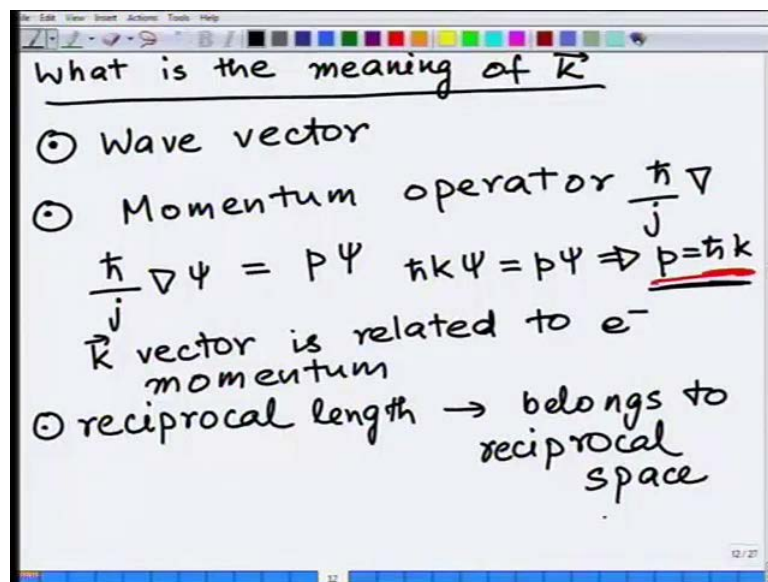 File Edit View Insert Actions Tools Help
What is the meaning of k⃗
⊙ Wave vector
⊙ Momentum operator ħ/j ∇
ħ/j ∇Ψ = pΨ ħkΨ = pΨ ⇒ p=ħk
k⃗ vector is related to e⁻
momentum
⊙ reciprocal length → belongs to
reciprocal
space
12/27
12